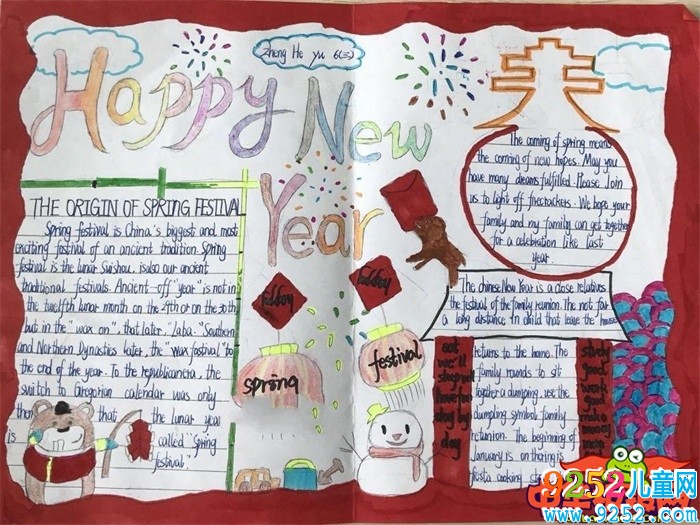 Happy New
Year
Zheng He yu 6(三)
THE ORIGIN OF SPRING FESTIVAL
Spring festival is China's biggest and most
exciting festival of an ancient tradition. Spring
festival is the lunar Suishou, isalso our ancient
traditional festivals. Ancient-off "year" is not in
the twelfth lunar month on the 29th or on the 30th
but in the "wax on", that later, "Laba". "Southern
and Northern Dynastics later, the "wax fastival" to
the end of the year. To the republicanera, the
switch to Gregorian calendar was only
then that the lunar year
is called "Spring
festival"
spring
festival
The coming of spring means
the coming of new hopes. May you
have many dreams fulfilled. Please Join
us to light off firecrackers. We hope your
family and my family can get together
for a celebration like last
year
The chinese New Year is a close relatives
the festival of the family reunion. The not far
a long distance in child that leave the house
returns to the home. The
family rounds to sit
together a dumpling, use the
dumpling symbol family
retunion. The beginning of
January is on tharing is
fiesta cooking
eat
we'll
day by
day
study
good
work
good
make
money
many
9252儿童网
www.9252.com